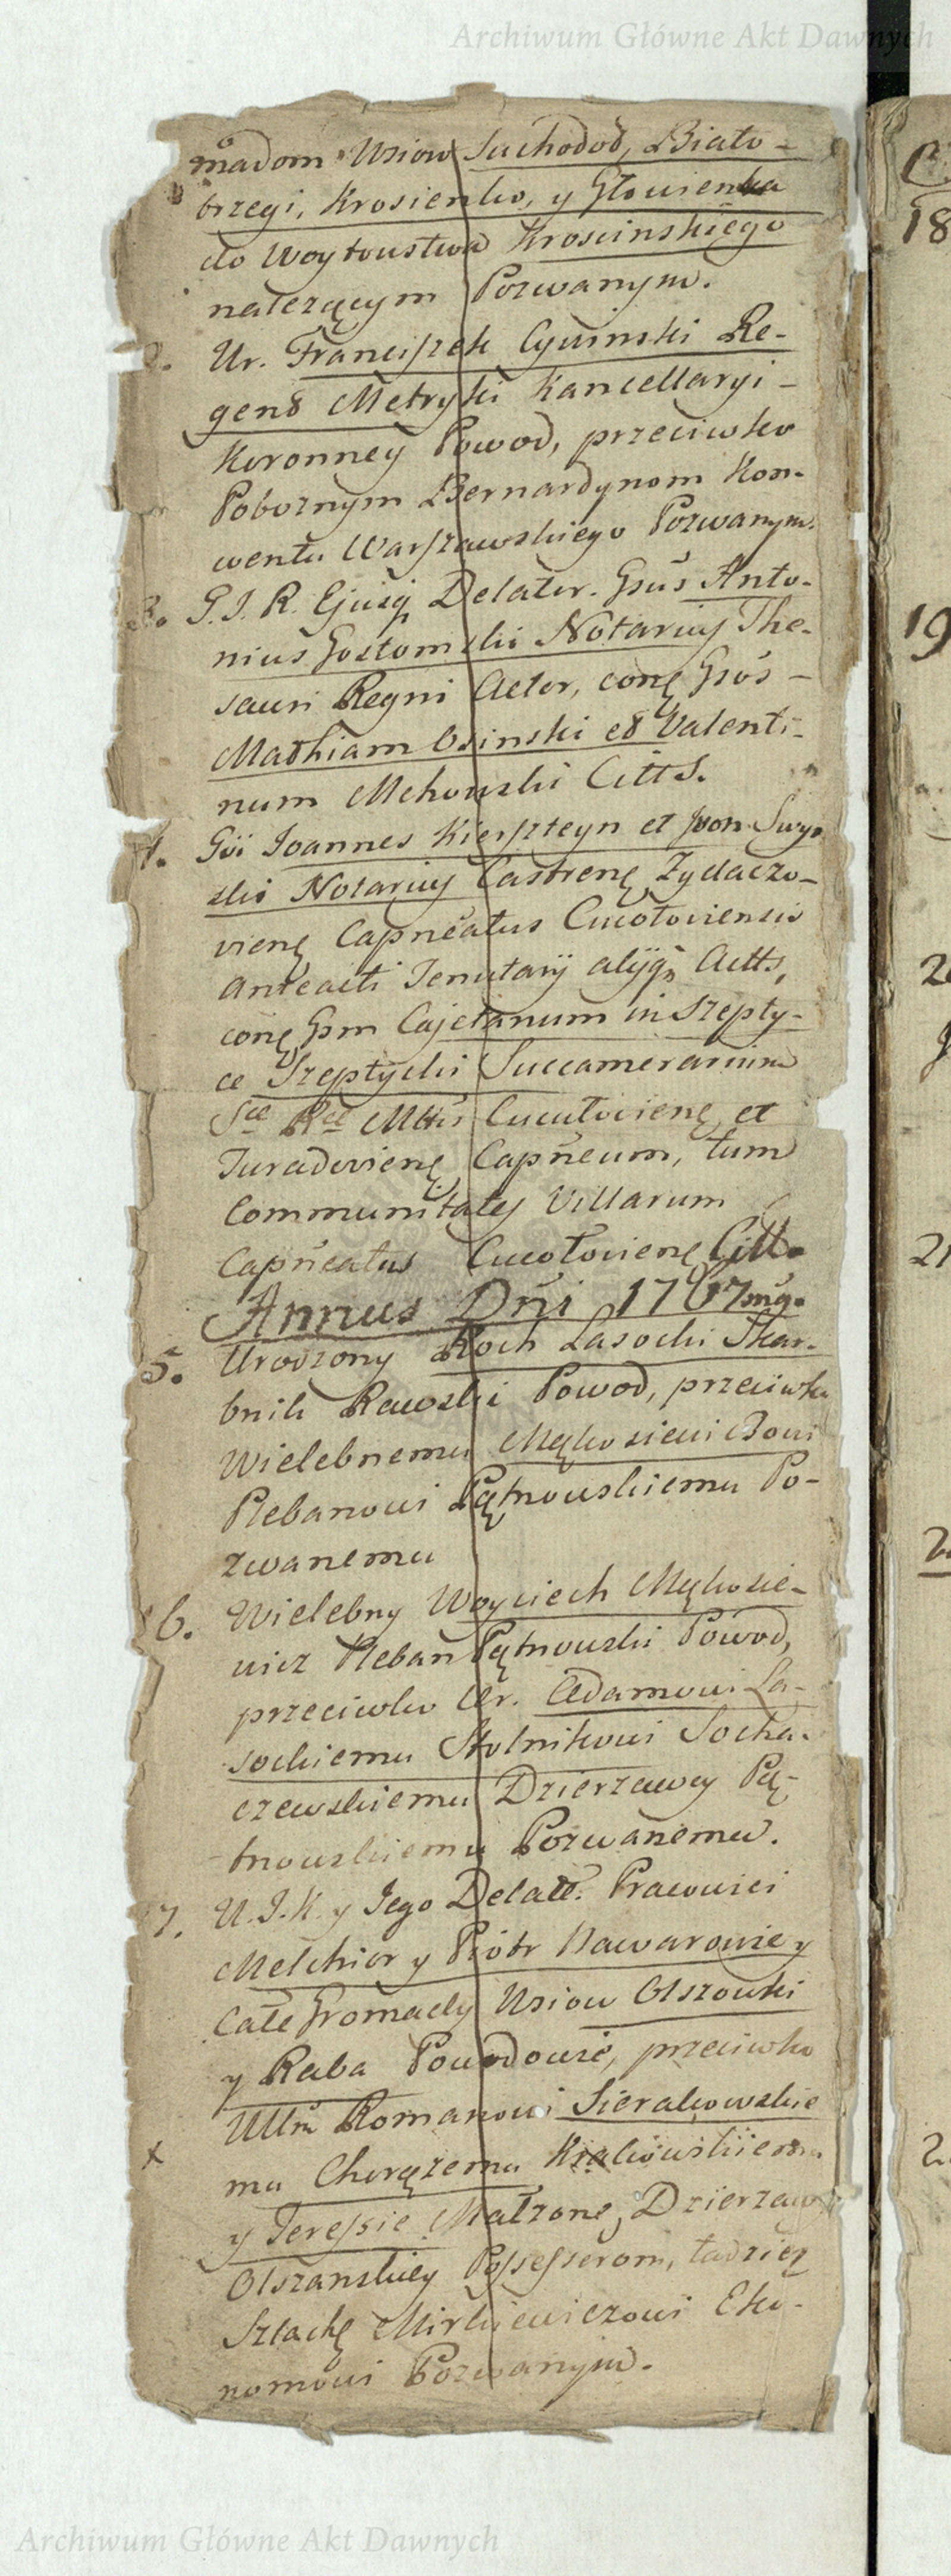 Archiwum Główne Akt Dawnych
madom Wsiow Suchodoł, Biało-
brzegi, Krosienko, y Głowienka
do Woytowstwa Kroscinskiego
należącym Pozwanym.
2. Ur. Franciszek Cywinski Re-
gens Metryki Kancellaryi -
Koronney Powod, przeciwko
Pobożnym Bernardynom Kon-
wentu Warszawskiego Pozwanym.
3. S. I. R. Ejusq Delator. Gsus Anto-
nius Gostomski Notarius The-
sauri Regni Actor, conę Gsos -
Mathiam Osinski et Valenti-
num Mchowski Citts.
4. Gsi Joannes Kierszteyn et
ski Notarius Castrenę Zydaczo-
vienę Capneatus Cucołoviensis
anteacti Tenutarij alijq Actts,
conę Gsm Cajetanum in Szepty-
ce Szeptycki Succamerarium
Sce Rce Mttis Cucułovienę et
Juradovienę Capneum, tum
Communitates Villarum
Capneatus Cucołovienę Citt.
Annus Dni 1767mus.
5. Urodzony Roch Lasocki Skar-
bnik Rawski Powod, przeciwko
Wielebnemu Mękosiewiczowi
Plebanowi Pętnowskiemu Po-
zwanemu
6. Wielebny Woyciech Mękosie-
wicz Pleban Pętnowski Powod,
przeciwko Ur. Adamowi La-
sockiemu Stolnikowi Socha-
czewskiemu Dzierzawcy Pę-
tnowskiemu Pozwanemu.
7. U. I. K. y Jego Delatt. Pracowici
Melchior y Piotr Nawarowie y
Całe Gromady Wsiow Olszowki
y Raba Powodowie, przeciwko
Ullm Romanowi Sierakowskie
x mu Chorązemu Krakowskiemu
y Teressie Małzonę, Dzierzawy
Olszanskiey Possesserom, tudziez
Szlachę Mirkiewiczowi Eko-
nomowi Pozwanym.
18
19
21
Archiwum Główne Akt Dawnych